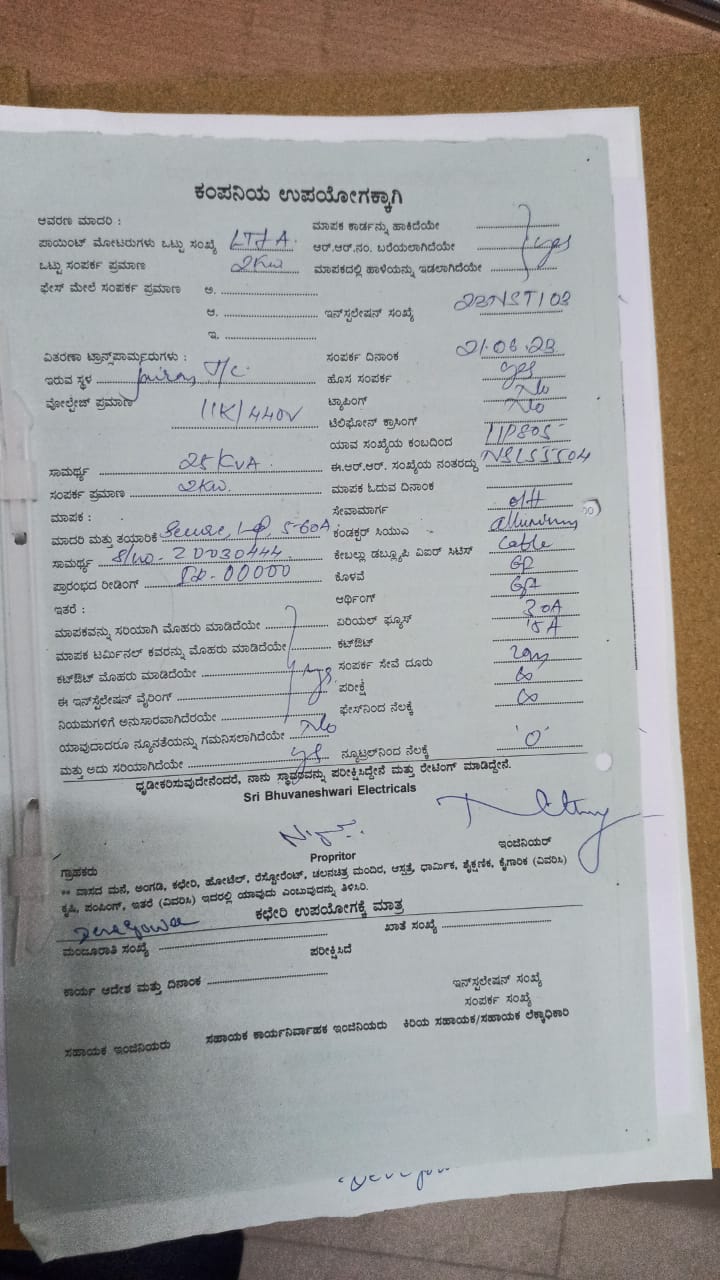 ಕಂಪನಿಯ ಉಪಯೋಗಕ್ಕಾಗಿ
ಆವರಣ ಮಾದರಿ : ಮಾಪಕ ಕಾರ್ಡನ್ನು ಹಾಕಿದೆಯೇ
ಪಾಯಿಂಟ್ ಮೋಟರುಗಳು ಒಟ್ಟು ಸಂಖ್ಯೆ ಆರ್.ಆರ್.ನಂ. ಬರೆಯಲಾಗಿದೆಯೇ yes
ಒಟ್ಟು ಸಂಪರ್ಕ ಪ್ರಮಾಣ 2KW ಮಾಪಕದಲ್ಲಿ ಹಾಳೆಯನ್ನು ಇಡಲಾಗಿದೆಯೇ
ಫೇಸ್ ಮೇಲೆ ಸಂಪರ್ಕ ಪ್ರಮಾಣ ಅ.
ಆ. ಇನ್‌ಸ್ಟಲೇಷನ್ ಸಂಖ್ಯೆ
ಇ.
ವಿತರಣಾ ಟ್ರಾನ್ಸ್‌ಪಾರ್ಮರುಗಳು : ಸಂಪರ್ಕ ದಿನಾಂಕ 21.06.23
ಇರುವ ಸ್ಥಳ T/C ಹೊಸ ಸಂಪರ್ಕ yes
ವೋಲ್ಟೇಜ್ ಪ್ರಮಾಣ 11K/440V ಟ್ಯಾಪಿಂಗ್ No
ಟೆಲಿಫೋನ್ ಕ್ರಾಸಿಂಗ್ No
ಯಾವ ಸಂಖ್ಯೆಯ ಕಂಬದಿಂದ
ಸಾಮರ್ಥ್ಯ 25KVA ಈ.ಆರ್.ಆರ್. ಸಂಖ್ಯೆಯ ನಂತರದ್ದು
ಸಂಪರ್ಕ ಪ್ರಮಾಣ 2KW ಮಾಪಕ ಓದುವ ದಿನಾಂಕ
ಮಾಪಕ : ಸೇವಾಮಾರ್ಗ o/H
ಮಾದರಿ ಮತ್ತು ತಯಾರಿಕೆ 5-60A ಕಂಡಕ್ಟರ್ ಸಿಯುಎ
ಸಾಮರ್ಥ್ಯ S/no- 20030444 ಕೇಬಲ್ಲು ಡಬ್ಲ್ಯೂಪಿ ವಿಐರ್ ಸಿಟಿಸ್ Cable
ಪ್ರಾರಂಭದ ರೀಡಿಂಗ್ 00000 ಕೊಳವೆ GP
ಇತರೆ : ಆರ್ಥಿಂಗ್
ಮಾಪಕವನ್ನು ಸರಿಯಾಗಿ ಮೊಹರು ಮಾಡಿದೆಯೇ ಏರಿಯಲ್ ಫ್ಯೂಸ್ 30A
ಮಾಪಕ ಟರ್ಮಿನಲ್ ಕವರನ್ನು ಮೊಹರು ಮಾಡಿದೆಯೇ ಕಟ್‌ಔಟ್ 15A
ಕಟ್‌ಔಟ್ ಮೊಹರು ಮಾಡಿದೆಯೇ yes ಸಂಪರ್ಕ ಸೇವೆ ದೂರು
ಈ ಇನ್‌ಸ್ಟೆಲೇಷನ್ ವೈರಿಂಗ್ ಪರೀಕ್ಷೆ ∞
ನಿಯಮಗಳಿಗೆ ಅನುಸಾರವಾಗಿದೆರಯೇ ಫೇಸ್‌ನಿಂದ ನೆಲಕ್ಕೆ ∞
ಯಾವುದಾದರೂ ನ್ಯೂನತೆಯನ್ನು ಗಮನಿಸಲಾಗಿದೆಯೇ No
ಮತ್ತು ಅದು ಸರಿಯಾಗಿದೆಯೇ yes ನ್ಯೂಟ್ರಲ್‌ನಿಂದ ನೆಲಕ್ಕೆ '0'
ಧೃಡೀಕರಿಸುವುದೇನೆಂದರೆ, ನಾನು ಸ್ಥಾವರವನ್ನು ಪರೀಕ್ಷಿಸಿದ್ದೇನೆ ಮತ್ತು ರೇಟಿಂಗ್ ಮಾಡಿದ್ದೇನೆ.
Sri Bhuvaneshwari Electricals
Propritor ಇಂಜಿನಿಯರ್
ಗ್ರಾಹಕರು
** ವಾಸದ ಮನೆ, ಅಂಗಡಿ, ಕಛೇರಿ, ಹೋಟೆಲ್, ರೆಸ್ಟೋರೆಂಟ್, ಚಲನಚಿತ್ರ ಮಂದಿರ, ಆಸ್ಪತ್ರೆ, ಧಾರ್ಮಿಕ, ಶೈಕ್ಷಣಿಕ, ಕೈಗಾರಿಕ (ವಿವರಿಸಿ)
ಕೃಷಿ, ಪಂಪಿಂಗ್, ಇತರೆ (ವಿವರಿಸಿ) ಇದರಲ್ಲಿ ಯಾವುದು ಎಂಬುವುದನ್ನು ತಿಳಿಸಿರಿ.
ಕಛೇರಿ ಉಪಯೋಗಕ್ಕೆ ಮಾತ್ರ
ಮಂಜೂರಾತಿ ಸಂಖ್ಯೆ ಖಾತೆ ಸಂಖ್ಯೆ
ಪರೀಕ್ಷಿಸಿದೆ
ಕಾರ್ಯ ಆದೇಶ ಮತ್ತು ದಿನಾಂಕ ಇನ್‌ಸ್ಟಲೇಷನ್ ಸಂಖ್ಯೆ
ಸಂಪರ್ಕ ಸಂಖ್ಯೆ
ಸಹಾಯಕ ಇಂಜಿನಿಯರು ಸಹಾಯಕ ಕಾರ್ಯನಿರ್ವಾಹಕ ಇಂಜಿನಿಯರು ಕಿರಿಯ ಸಹಾಯಕ/ಸಹಾಯಕ ಲೆಕ್ಕಾಧಿಕಾರಿ